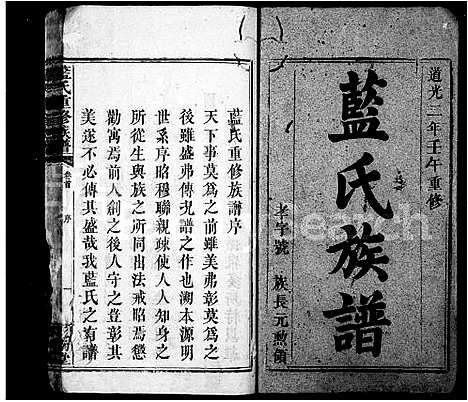 道光二年壬午重修
藍氏族譜
孝字號 族長元勲領
藍氏重修族譜序
天下事莫為之前雖美弗彰莫為之
後雖盛弗傳況譜之作也溯本源明
世系序昭穆聯親疎使人人知身之
所從生與族之所同出法戒昭焉懲
勸寓焉前人創之後人守之豈彰其
美遂不必傳其盛哉我藍氏之有譜
藍氏重修族譜 卷首 序 一